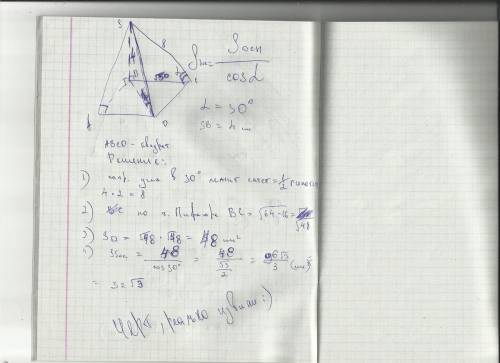 S
8
B
C
A
D
Sбок = Sосн / cosα
α = 30°
SB = 4 см
ABCD - квадрат
Решение:
1) напр. угла в 30° лежит катет = 1/2 гипотен
4 · 2 = 8
2) по т. Пифагора BC = √64-16 =
√48
3) SO = √48 · √48 = 48 см²
4) = 48 / cos 30° = 48 / (√3/2) = 96√3 / 3
= 32√3
Черт,
:)